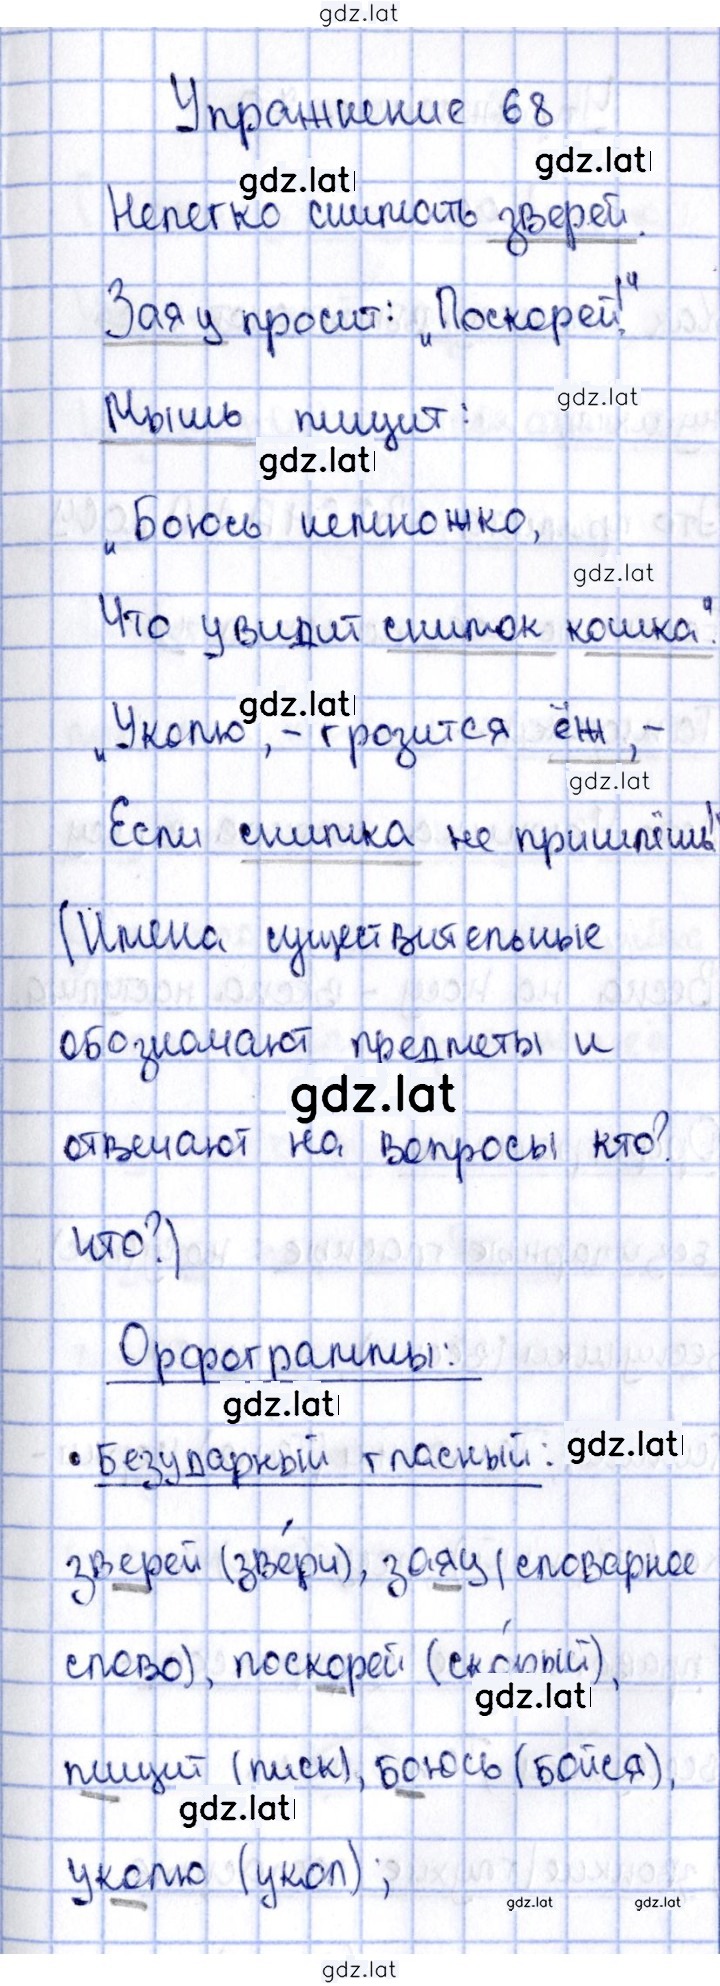 gdz.lat
Упражнение 68
gdz.lat
gdz.lat
Нелегко снимать зверей.
Заяц просит: „Поскорей!“
gdz.lat
Мышь пищит:
gdz.lat
„Боюсь немножко,
gdz.lat
Что увидит снимок кошка“.
gdz.lat
„Уколю, – грозится ёж, –
gdz.lat
Если снимка не пришлёшь!“
(Имена существительные
обозначают предметы и
gdz.lat
отвечают на вопросы кто?
что?)
Орфограммы:
gdz.lat
• Безударный гласный:
gdz.lat
зверей (зве́ри), заяц (словарное
слово), поскорей (ско́рый),
gdz.lat
пищит (писк), боюсь (бойся),
gdz.lat
уколю (укол);
gdz.lat
gdz.lat
gdz.lat